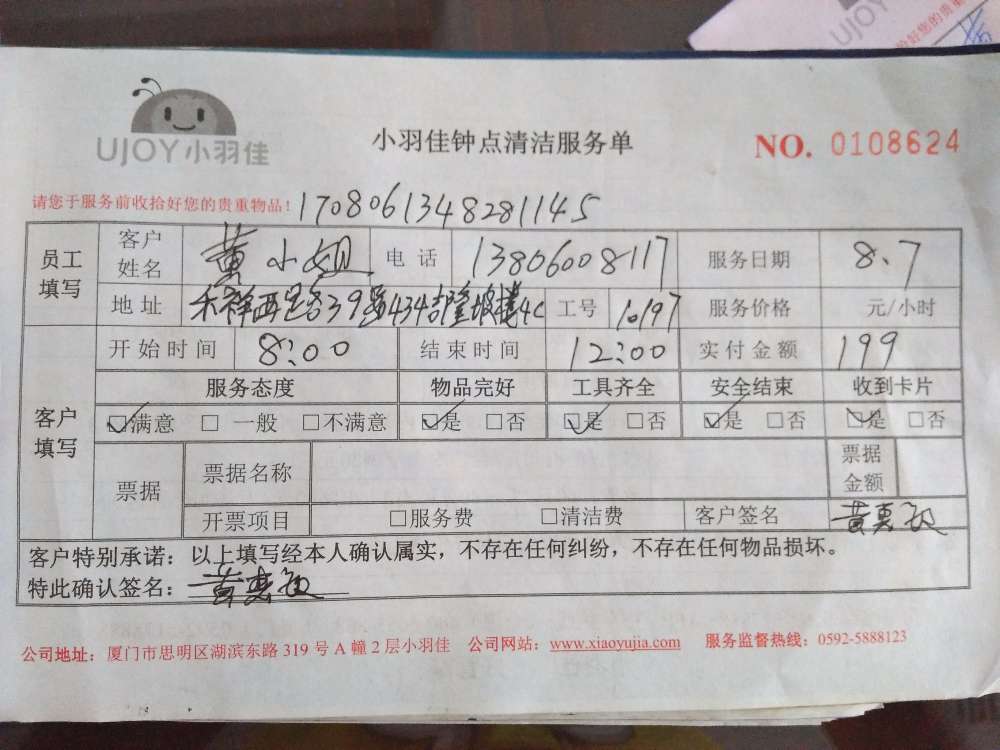 UJOY小羽佳
小羽佳钟点清洁服务单
NO. 0108624
请您于服务前收拾好您的贵重物品! 1708061348281145
员工填写 客户姓名 黄小姐 电话 13806008117 服务日期 8.7
地址 禾祥西路39号434吉隆坡楼4C 工号 10197 服务价格 元/小时
客户填写 开始时间 8:00 结束时间 12:00 实付金额 199
服务态度 物品完好 工具齐全 安全结束 收到卡片
☑满意 □ 一般 □不满意 ☑是 □否 ☑是 □否 ☑是 □否 ☑是 □否
票据 票据名称 票据金额
开票项目 □服务费 □清洁费 客户签名 黄惠敏
客户特别承诺：以上填写经本人确认属实，不存在任何纠纷，不存在任何物品损坏。
特此确认签名：黄惠敏
公司地址：厦门市思明区湖滨东路 319 号 A 幢 2 层小羽佳 公司网站：www.xiaoyujia.com 服务监督热线：0592-5888123